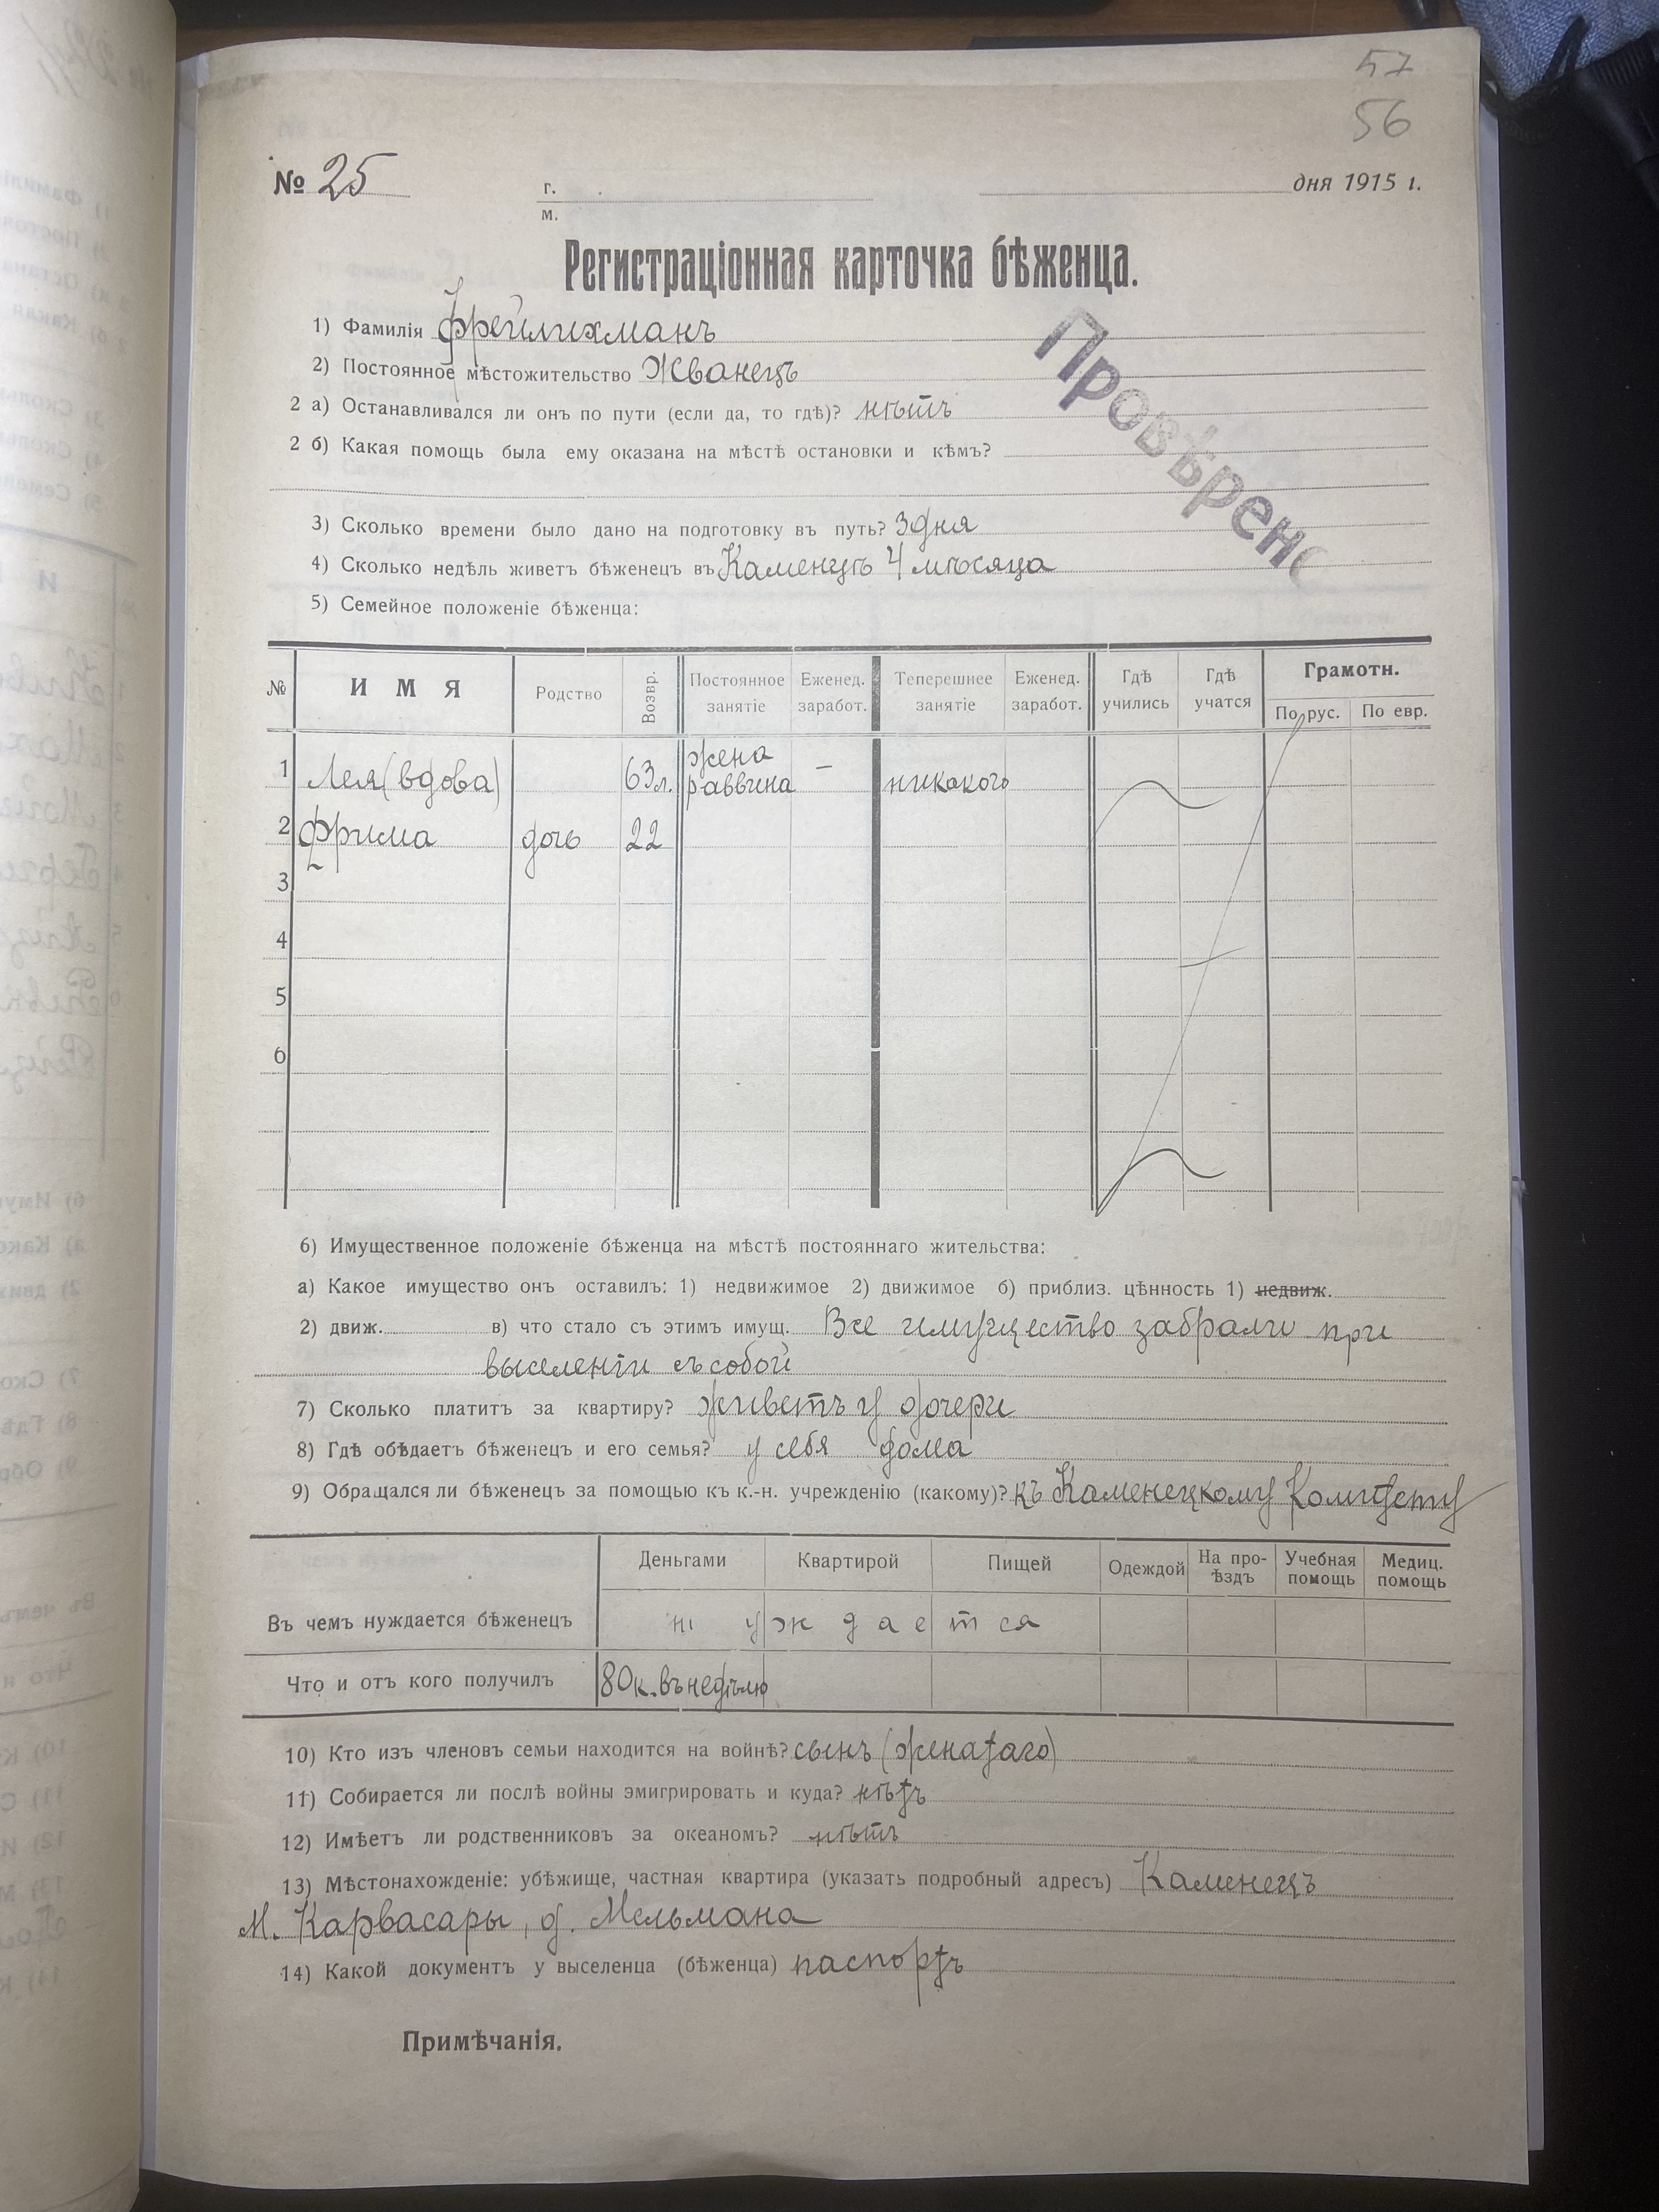 57
56
№ 25 г. м. дня 1915 г.
Регистраціонная карточка бѣженца.
Провѣрено
1) Фамилія Фрейлихманъ
2) Постоянное мѣстожительство Жванецъ
2 а) Останавливался ли онъ по пути (если да, то гдѣ)? нѣтъ
2 б) Какая помощь была ему оказана на мѣстѣ остановки и кѣмъ?
3) Сколько времени было дано на подготовку въ путь? 3 дня
4) Сколько недѣль живетъ бѣженецъ въ Каменцѣ 4 мѣсяца
5) Семейное положеніе бѣженца:
№ ИМЯ Родство Возвр. Постоянное занятіе Еженед. заработ. Теперешнее занятіе Еженед. заработ. Гдѣ учились Гдѣ учатся Грамотн. По рус. По евр.
1 Лея (вдова) 63 л. жена раввина — никакого
2 Фрима дочь 22
3
4
5
6
6) Имущественное положеніе бѣженца на мѣстѣ постояннаго жительства:
а) Какое имущество онъ оставилъ: 1) недвижимое 2) движимое б) приблиз. цѣнность 1) недвиж.
2) движ. в) что стало съ этимъ имущ. Все имущество забрали при
выселеніи съ собой
7) Сколько платитъ за квартиру? живетъ у дочери
8) Гдѣ обѣдаетъ бѣженецъ и его семья? у себя дома
9) Обращался ли бѣженецъ за помощью къ к.-н. учрежденію (какому)? къ Каменецкому Комитету
Деньгами Квартирой Пищей Одеждой На проѣздъ Учебная помощь Медиц. помощь
Въ чемъ нуждается бѣженецъ нуждается
Что и отъ кого получилъ 80 к. въ недѣлю
10) Кто изъ членовъ семьи находится на войнѣ? сынъ (женатаго)
11) Собирается ли послѣ войны эмигрировать и куда? нѣтъ
12) Имѣетъ ли родственниковъ за океаномъ? нѣтъ
13) Мѣстонахожденіе: убѣжище, частная квартира (указать подробный адресъ) Каменецъ
М. Карвасары, д. Мельмана
14) Какой документъ у выселенца (бѣженца) паспортъ
Примѣчанія.